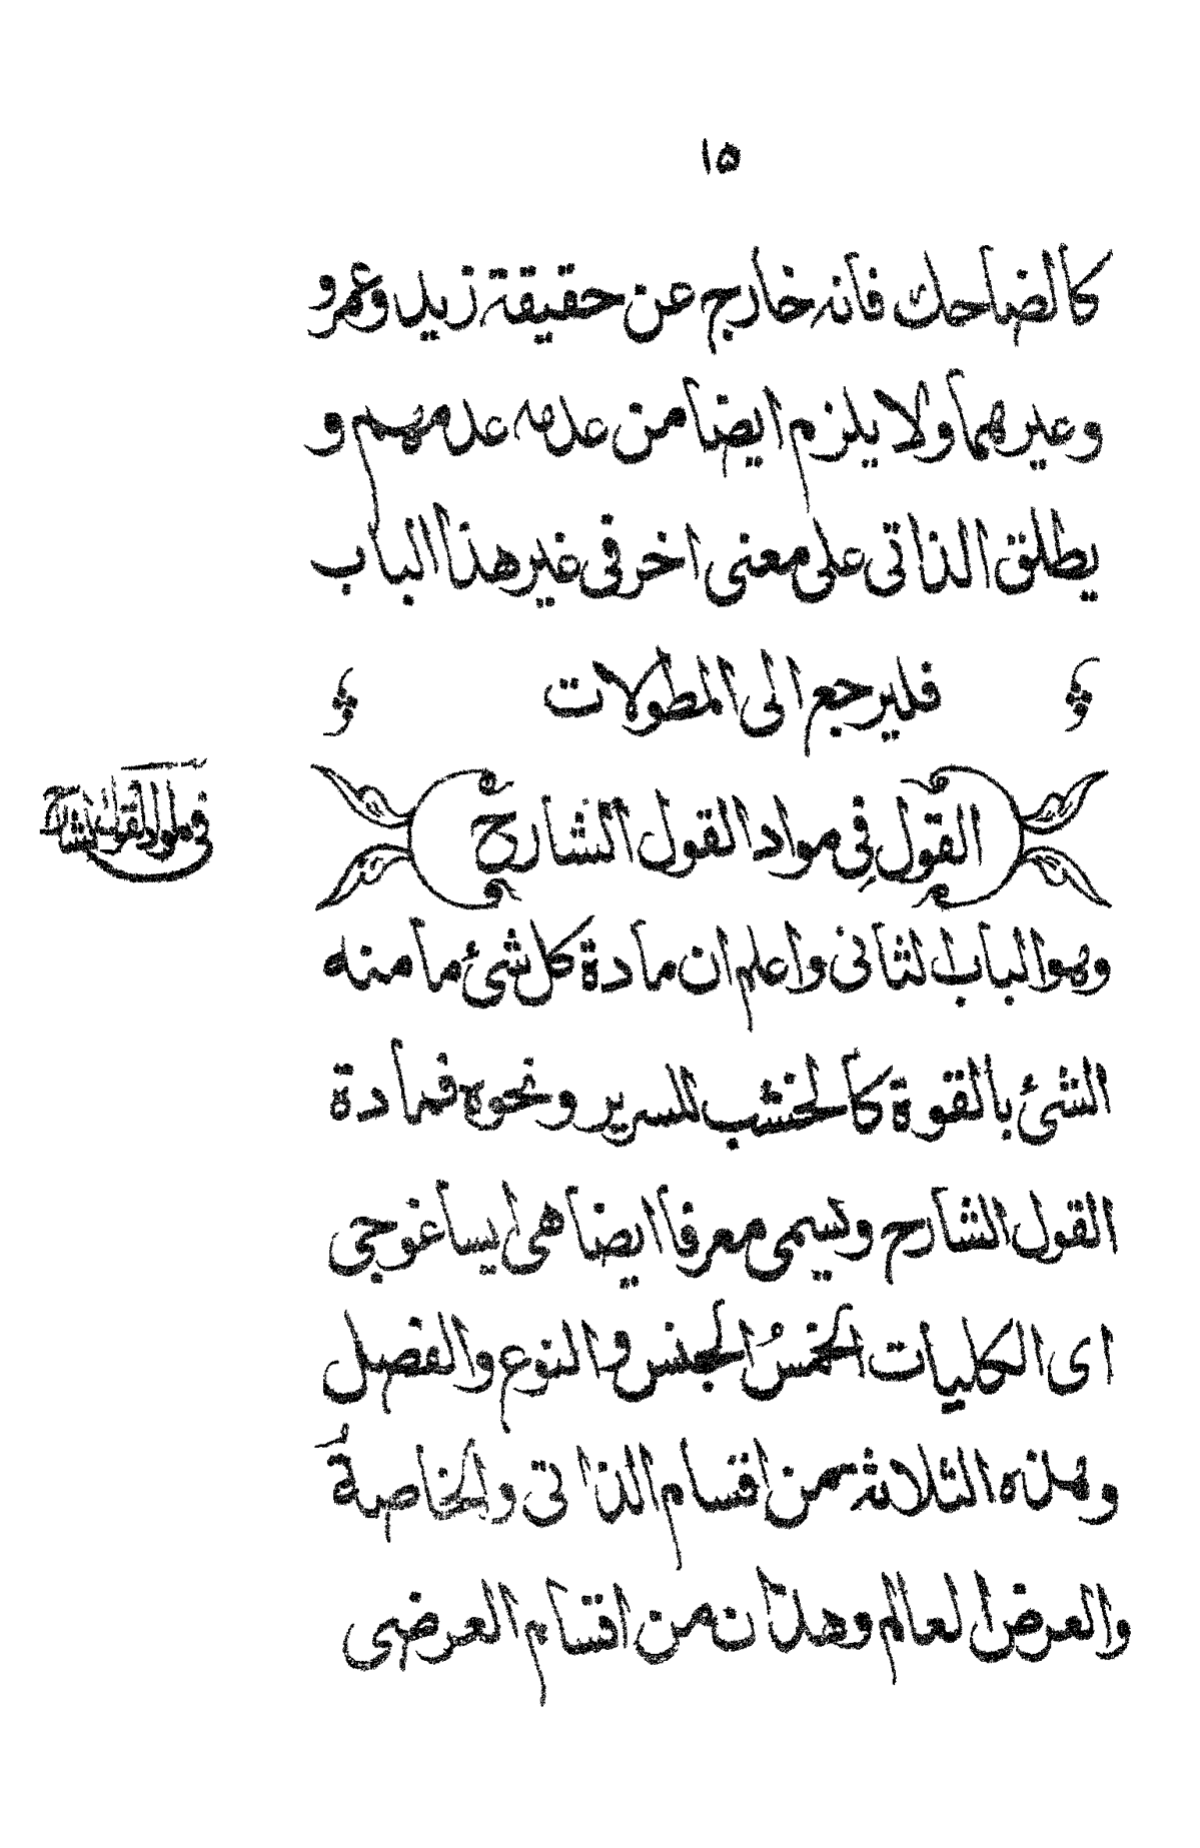 ١٥
كالضاحك فانه خارج عن حقيقة زيد وعمرو
وغيرهما ولا يلزم ايضا من عدمه عدمهم و
يطلق الذاتى على معنى اخر فى غير هذا الباب
فليرجع الى المطولات
القول فى مواد القول الشارح
فى مواد القول الشارح
وهو الباب الثانى واعلم ان مادة كل شئ ما منه
الشئ بالقوة كالخشب للسرير ونحوه فمادة
القول الشارح ويسمى معرفا ايضا هى ايساغوجى
اى الكليات الخمسُ الجنس والنوع والفصل
وهذه الثلاثة من اقسام الذاتى والخاصةُ
والعرض العام وهذان من اقسام العرضى